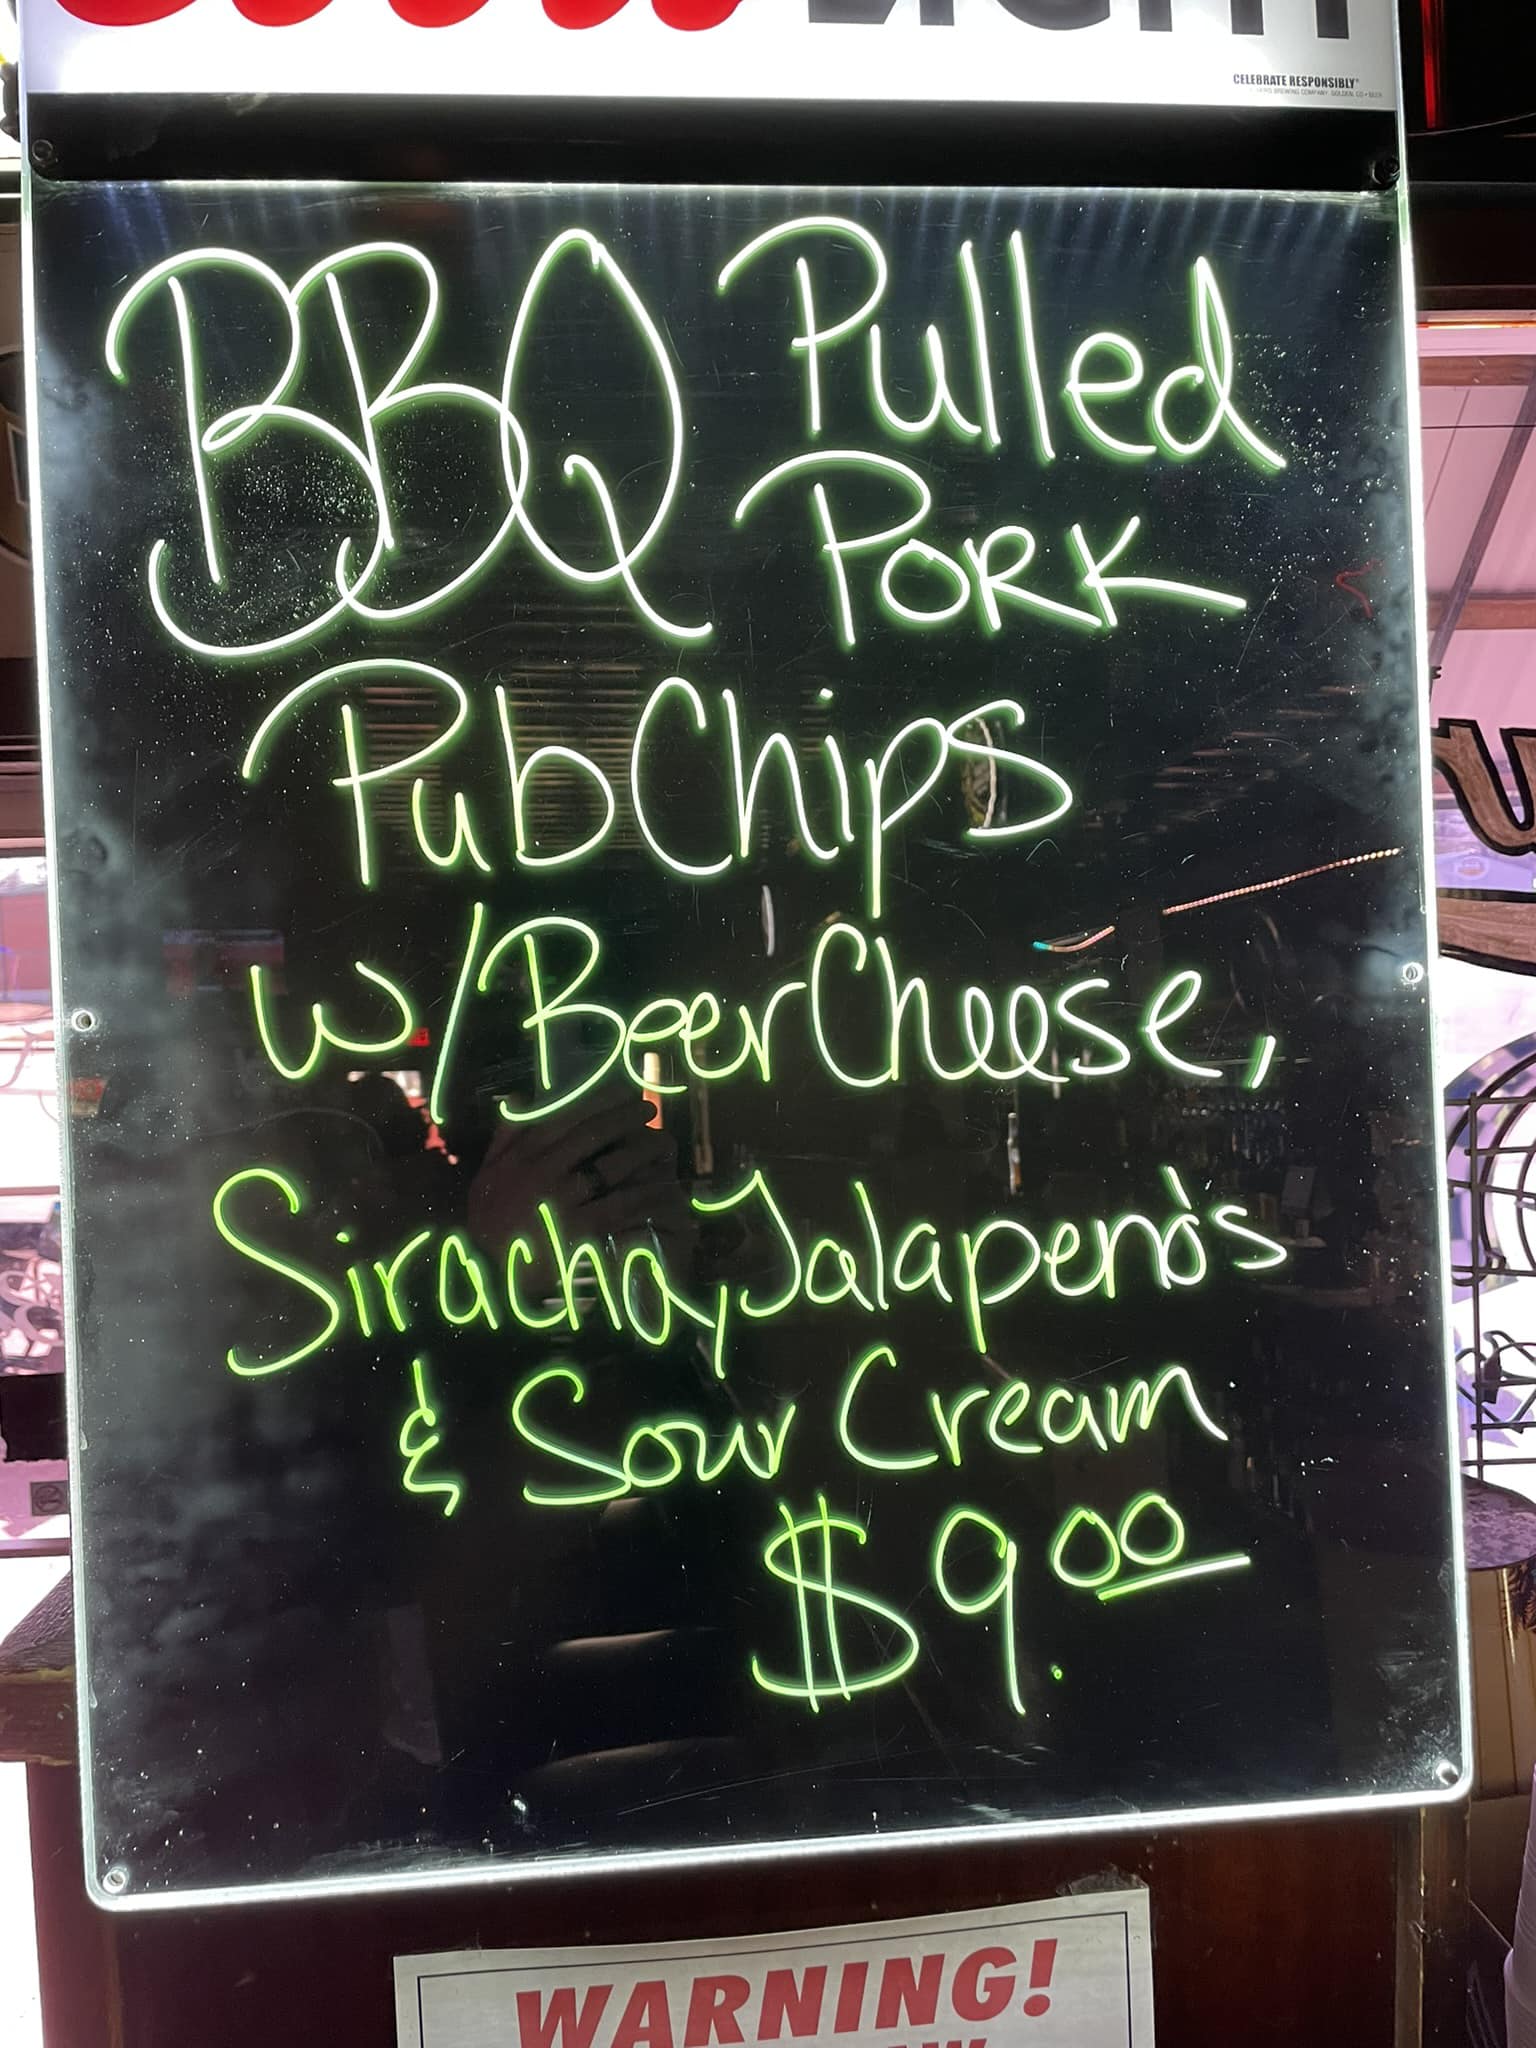 Coors LIGHT
CELEBRATE RESPONSIBLY®
BREWING COMPANY, GOLDEN, CO • BEER
BBQ Pulled
Pork
Pub Chips
w/ Beer Cheese,
Siracha, Jalapeno's
& Sour Cream
$9.00
WARNING!